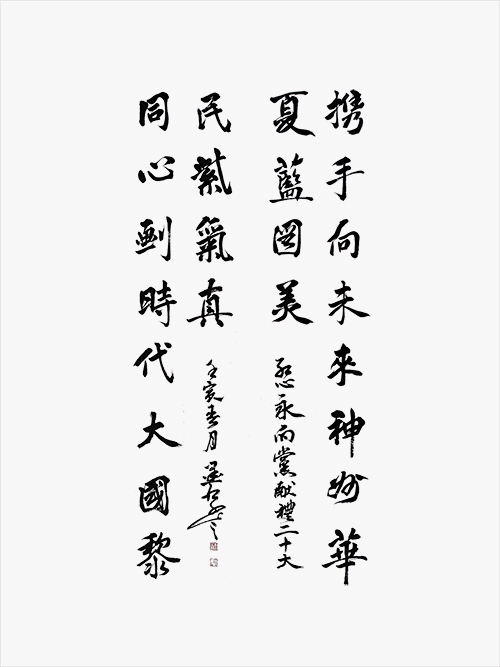 携手向未來神州華
夏藍圖美
紅心永向黨獻禮二十大
同心劃時代大國黎
民紫氣真
壬寅春月